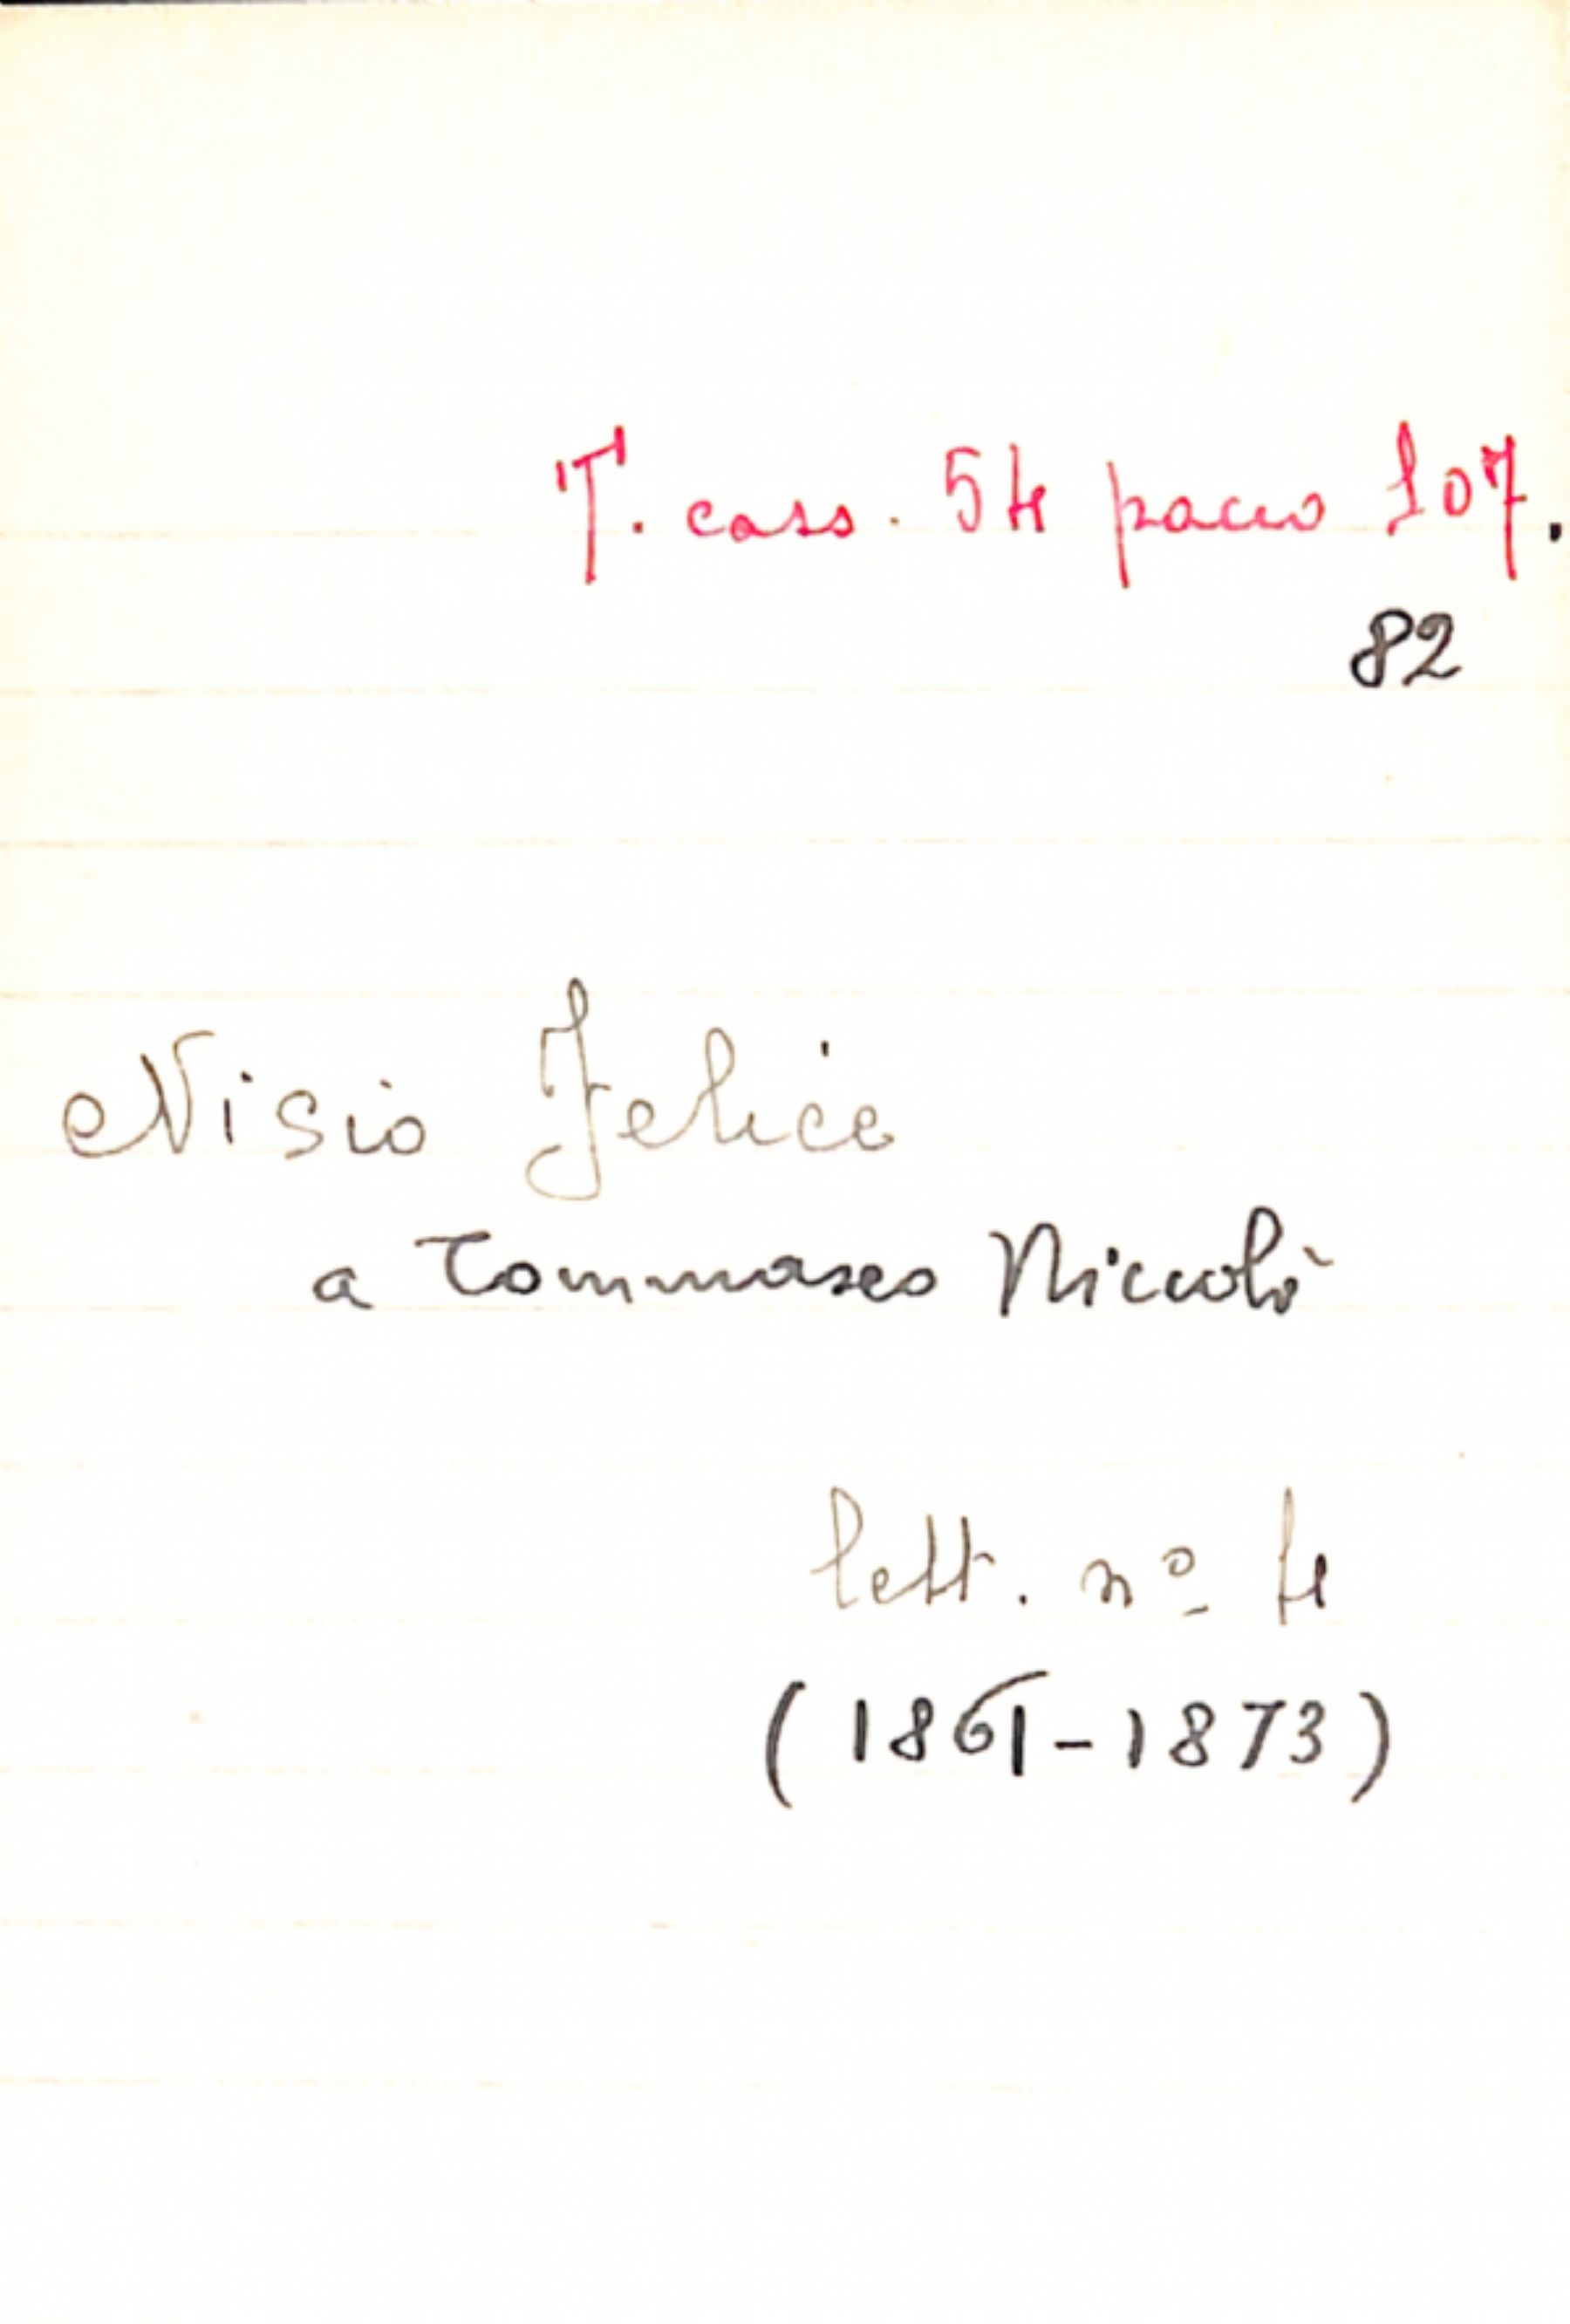 T. cass. 54 pacco 107.
82
Nisio Felice
a Tommaseo Niccolò
lett. nº 4
(1861-1873)